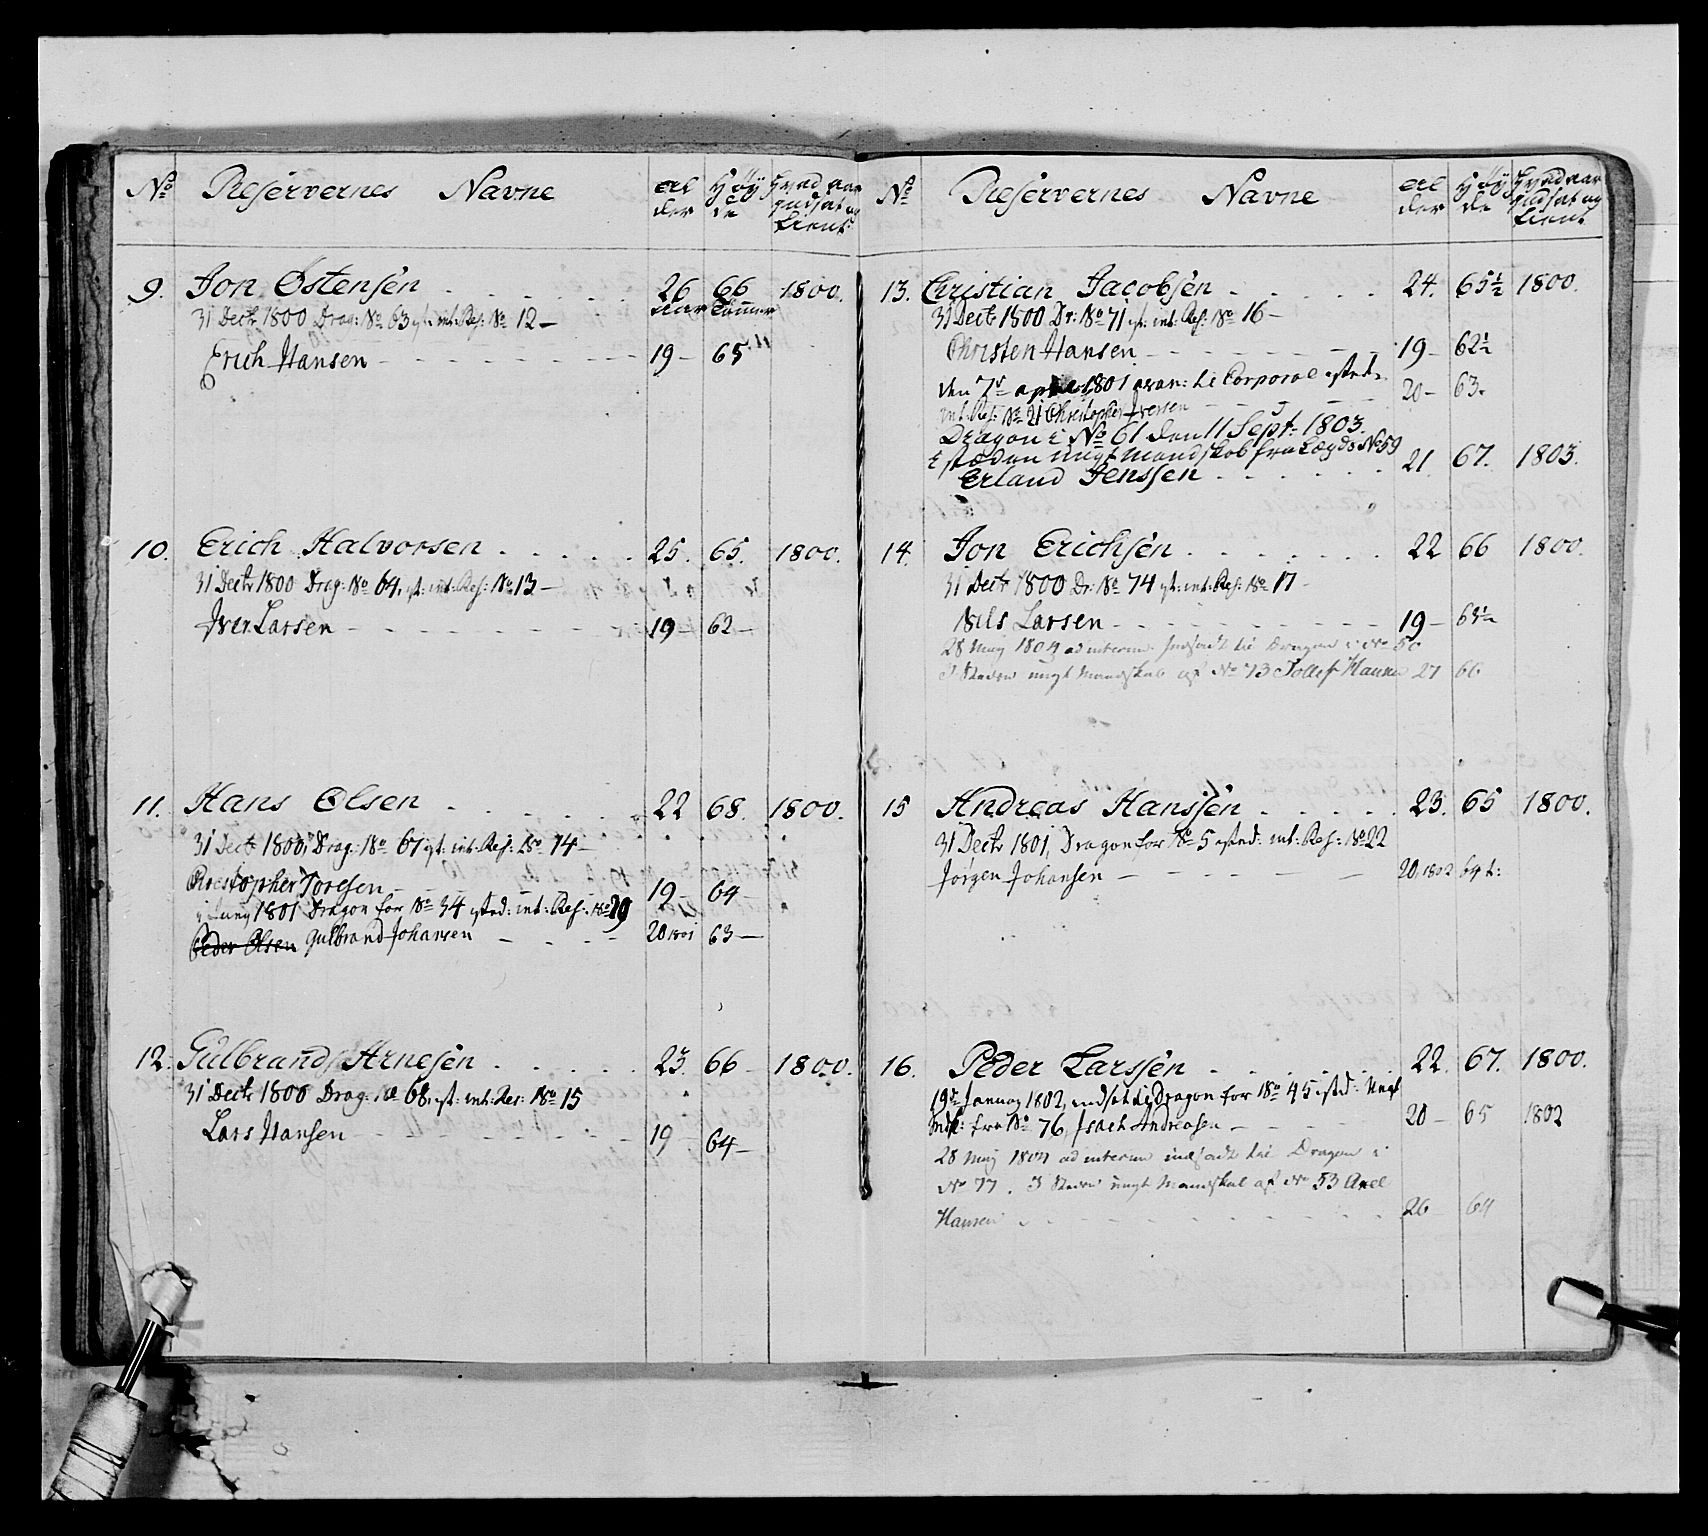 No Reservernes Navne al der Høy de Hvad aar indsat og tient
9. Jon Østensen 26 66 1800.
Aar Tommer
31 Dectr 1800 Drag: No 63 ist: int: Res: No 12 —
Erich Hansen 19 — 65
10. Erich Halvorsen 25. 65. 1800.
31 Dectr 1800 Drag: No 64, ist: int: Res: No 13 —
Iver Larsen 19 — 62 —
11. Hans Olsen 22 68. 1800.
31 Dectr 1800, Drag: No 67 ist: int: Res: No 14 —
Christopher Toresen 19 — 64 —
1801 Dragon for No 34 isted: int: Res: No 29
Peder Olsen Gulbrand Johansen 20 1801 63 —
12. Gulbrand Arnesen 23. 66 1800.
31 Dectr 1800 Drag: No 68, ist: int: Res: No 15
Lars Hansen 19 — 64 —
No Reservernes Navne al der Høy de Hvad aar indsat og tient
13. Christian Jacobsen 24. 65½ 1800.
31 Dectr 1800 Dr: No 71 ist: int: Res: No 16 —
Christen Hansen 19 — 62½
den 7de april 1801 avan: til Corporal isted:
int: Res: No 21 Christopher Iversen 20 — 63.
Dragon i No 61 den 11 Sept: 1803.
i stæden ungt Mandskob fra Lægds No 59
Erland Jenssen 21 67. 1803.
14. Jon Erichsen 22 66 1800.
31 Dectr 1800 Dr: No 74 ist: int: Res: No 17 —
Nils Larsen 19 —
28 May 1804 ad interim Indsadt til Dragon i No
I Steden ungt Mandskab af No 73 Tollef Hansen 27 66
15 Andreas Hanssen 23. 65 1800.
31 Dectr 1801, Dragon for No 5 isted: int: Res: No 22
Jørgen Johansen 20, 1802 64
16. Peder Larssen 22. 67. 1800.
19de Januay 1802, indsat til Dragon for No 45 isted:
Mdsk: fra No 76, Isach Andreasen 20 — 65 1802
28 May 1804 ad interim indsadt til Dragon i
No 77. I Steden ungt Mandskab af No 53 Axel
Hansen 26 — 64